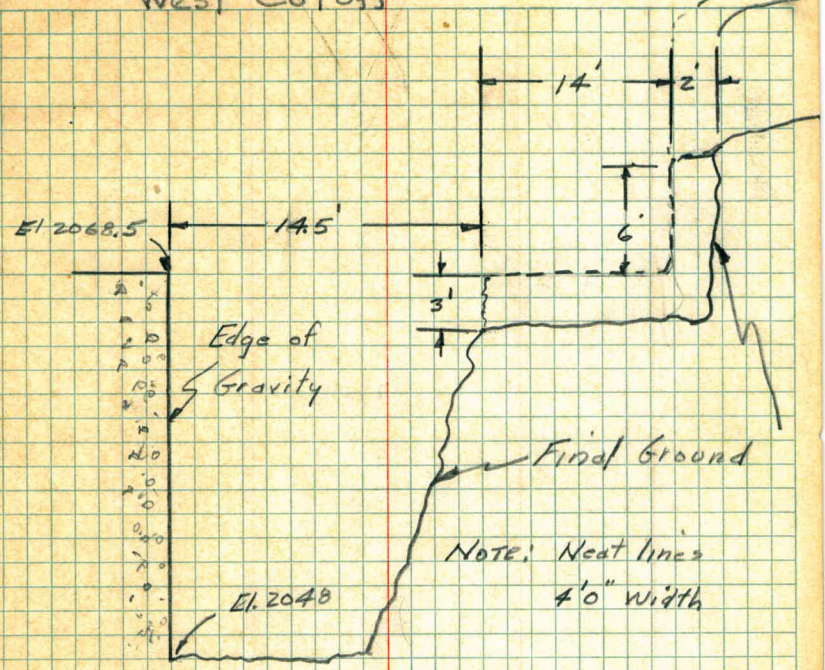 West Cutoff
14' 2'
El 2068.5
14.5'
6'
3'
Edge of
Gravity
Final Ground
NOTE: Neat lines
4'0" Width
El. 2048